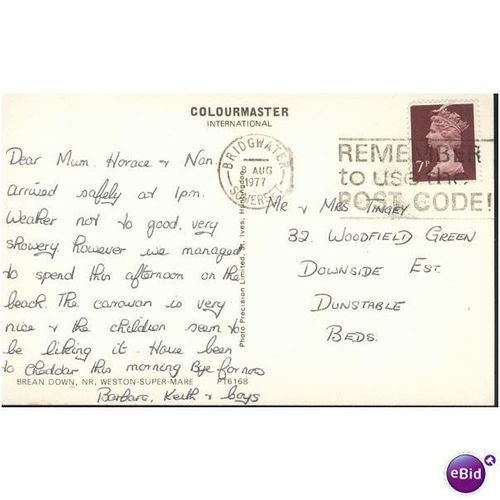 COLOURMASTER
INTERNATIONAL
BRIDGWATER
AUG
1977
SOMERSET
7P
REMEMBER
to use the
POST CODE!
Dear Mum. Horace & Nan.
arrived safely at 1pm.
Weather not to good, very
showery. However we managed
to spend this afternoon on the
beach. The caravan is very
nice & the children seem to
be liking it. Have been
to Cheddar this morning Bye for now
Barbara, Keith & boys
Photo Precision Limited, St. Ives, Huntingdon
Mr & Mrs Tingey
32. WOODFIELD GREEN
DOWNSIDE EST.
DUNSTABLE
BEDS.
BREAN DOWN, NR. WESTON-SUPER-MARE PT6168
eBid